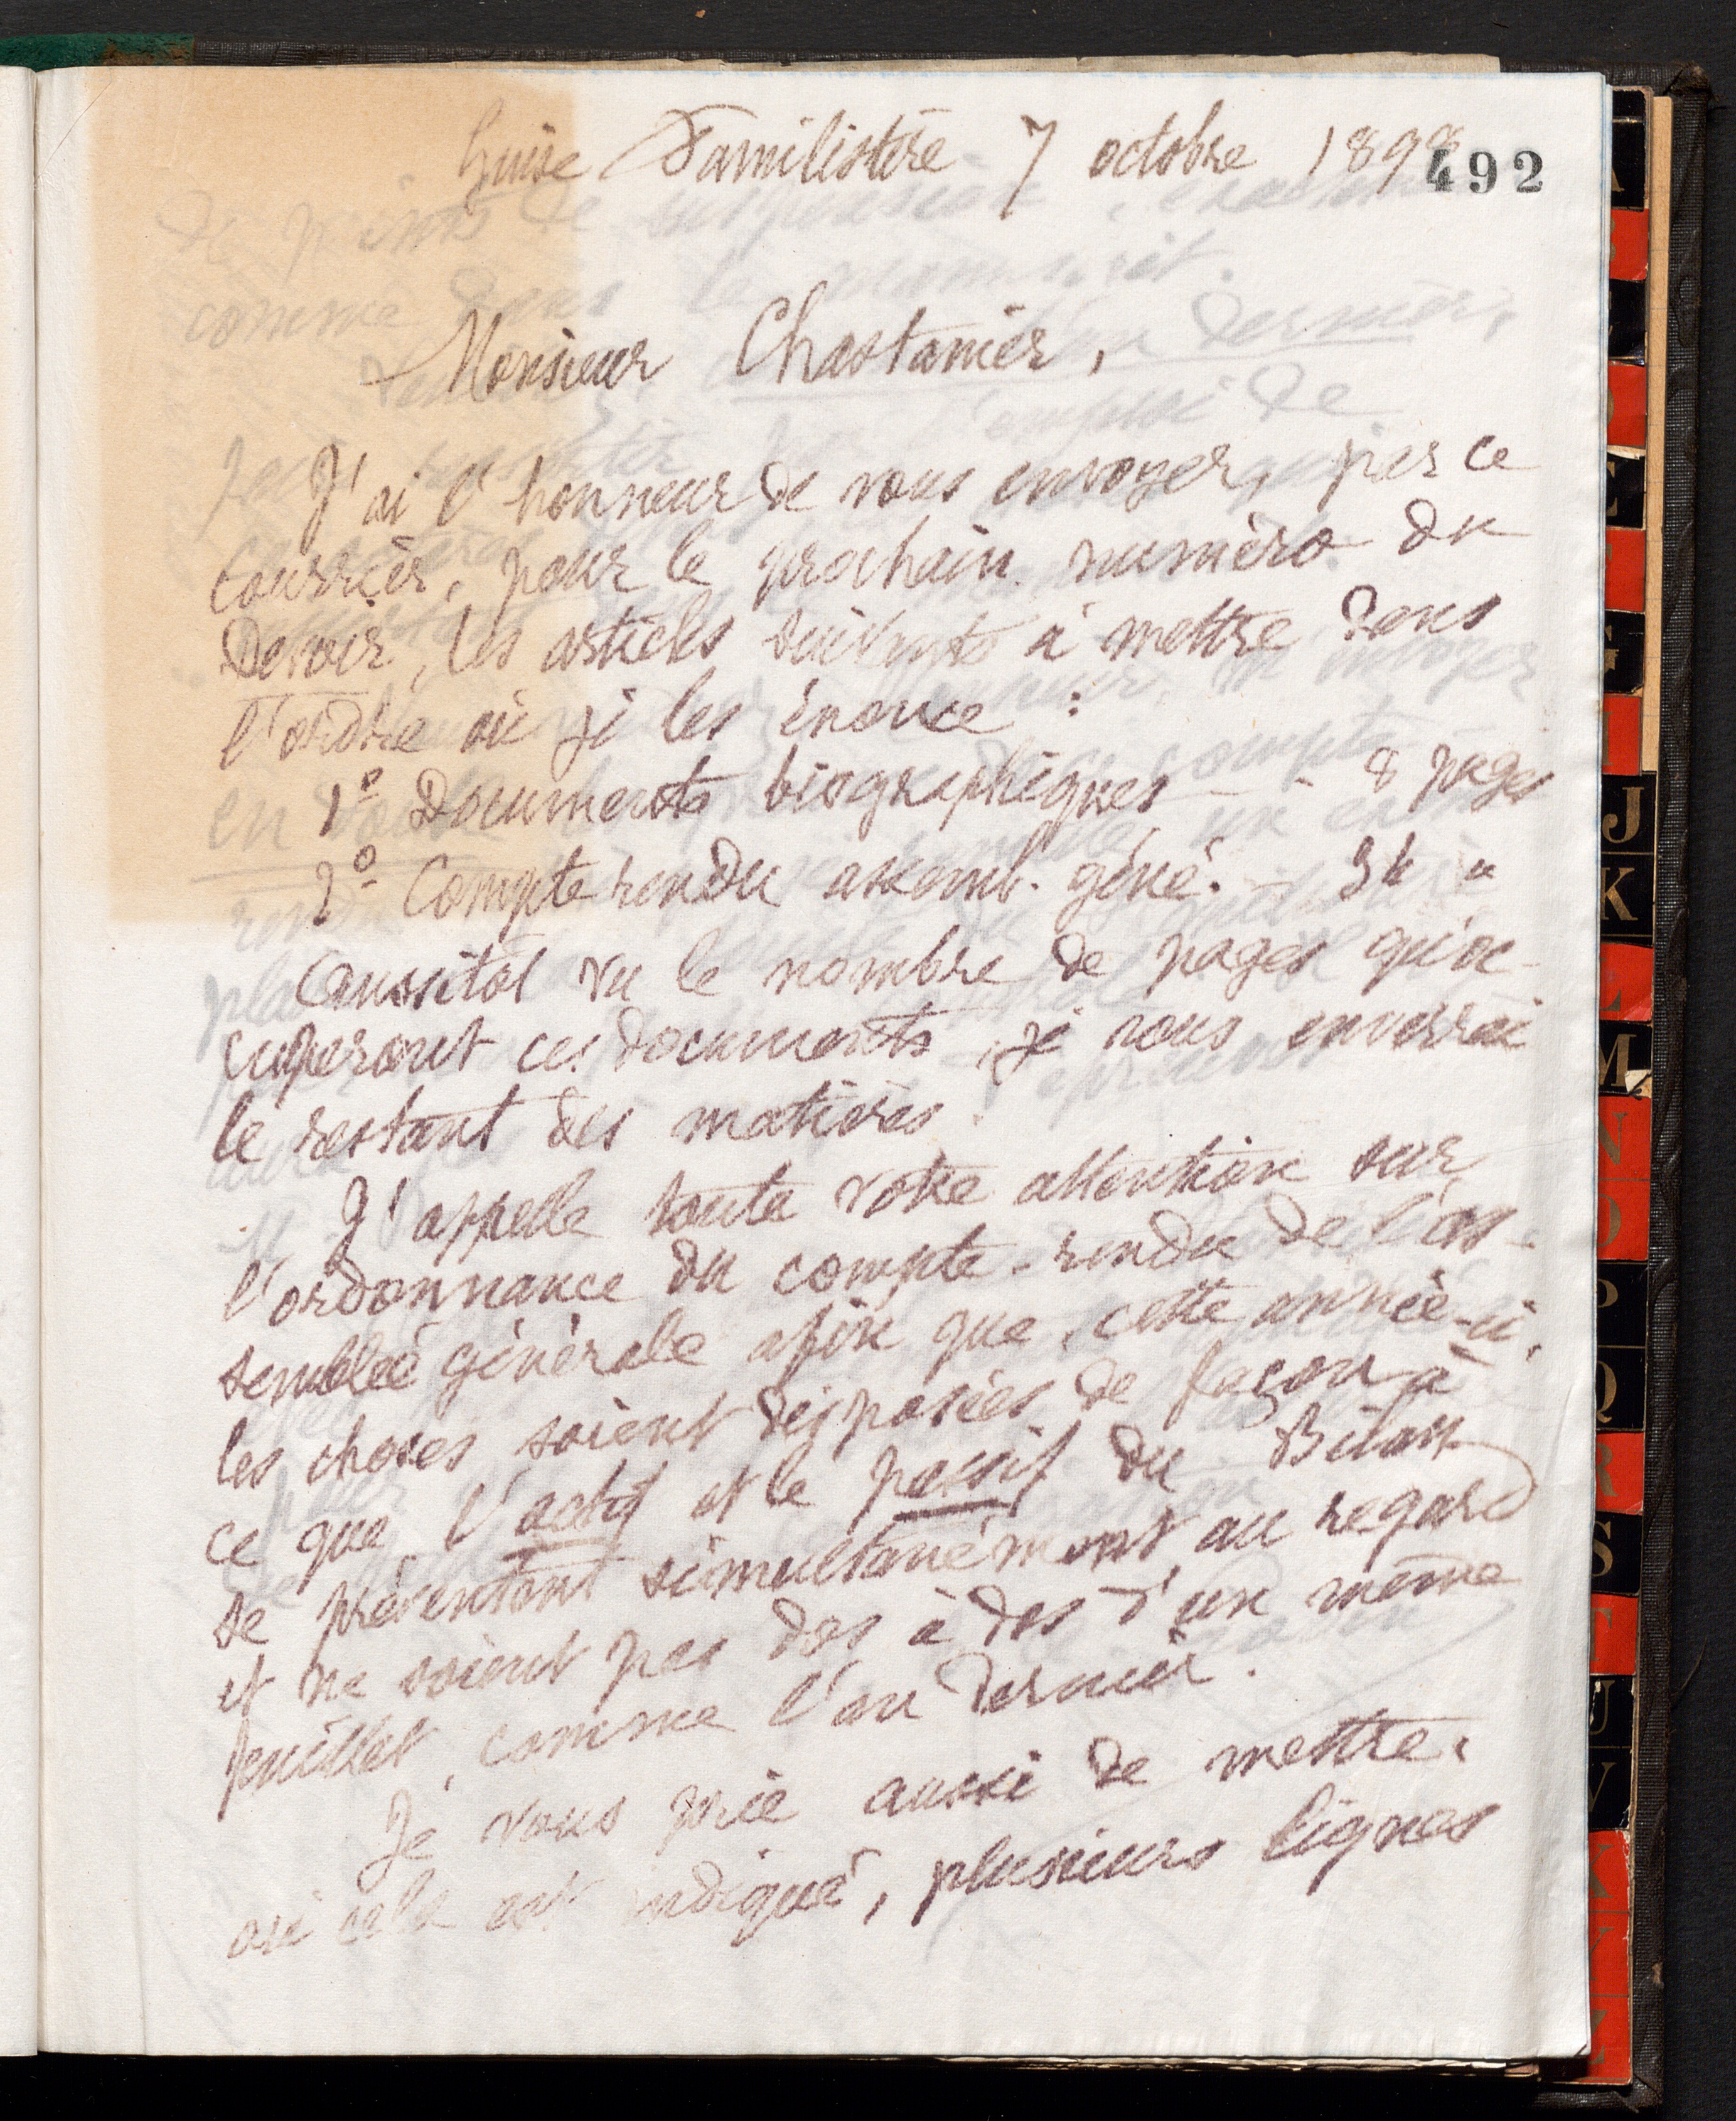 Guise Familistère 7 octobre 1898
492
Monsieur Chastanier,
J'ai l'honneur de vous envoyer, par ce
courrier, pour le prochain numéro du
Devoir, les articles suivants à mettre dans
l'ordre où je les énonce :
1º Documents biographiques - - 8 pages
2º Compte rendu assemb. géné. - 34 "
Aussitôt vu le nombre de pages qu'oc-
cuperont ces documents, je vous enverrai
le restant des matières.
J'appelle toute votre attention sur
l'ordonnance du compte-rendu de l'as-
semblée générale afin que, cette année-ci,
les choses soient disposées de façon à
ce que l'actif et le passif du Bilan
se présentent simultanément au regard
et ne soient pas dos à dos d'un même
feuillet, comme l'an dernier.
Je vous prie aussi de mettre,
où cela est indiqué, plusieurs lignes